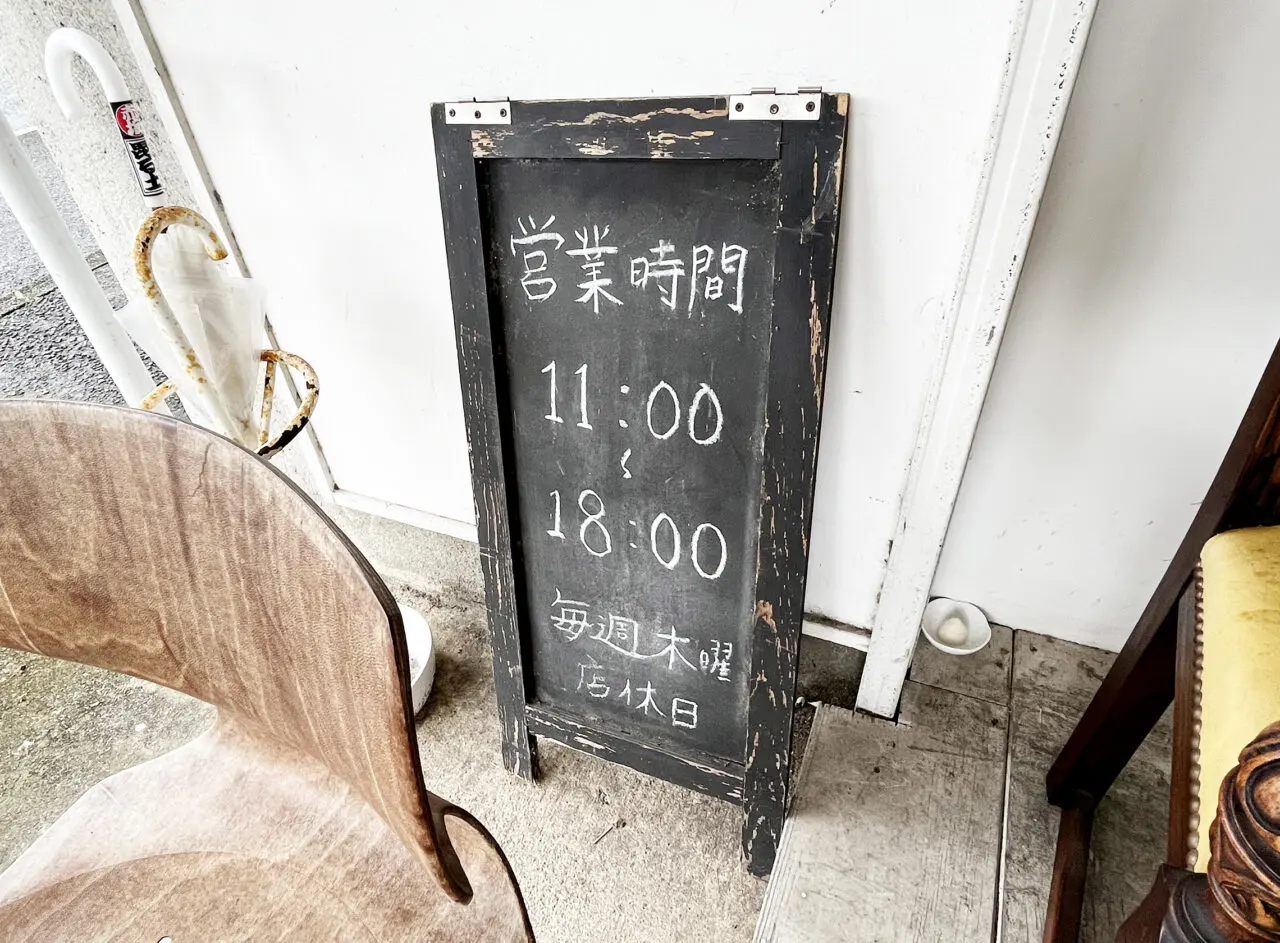 営業時間
11:00
～
18:00
毎週木曜
店休日